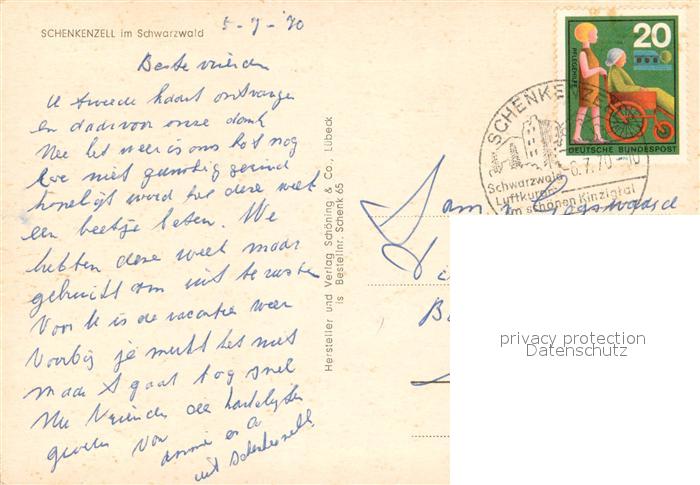 SCHENKENZELL im Schwarzwald
5-7-'70
Beste vrienden
U tweede kaart ontvangen
en daarvoor onze dank
Nee het weer is ons tot nog
toe niet gunstig gezind
hopelijk word het deze week
een beetje beter. We
hebben deze week maar
gebruikt om uit te rusten
Voor U is de vacantie weer
Voorbij je merkt het niet
maar t gaat tog snel
Nu Vrienden de hartelijke
groeten van
en
uit Schenkenzell
Hersteller und Verlag Schöning & Co., Lübeck
is Bestellnr. Schenk 65
20
PFLEGEHILFE
DEUTSCHE BUNDESPOST
SCHENKENZELL
-6.7.70-10
Schwarzwald
Luftkurort
im schönen Kinzigtal
Fam.
privacy protection
Datenschutz